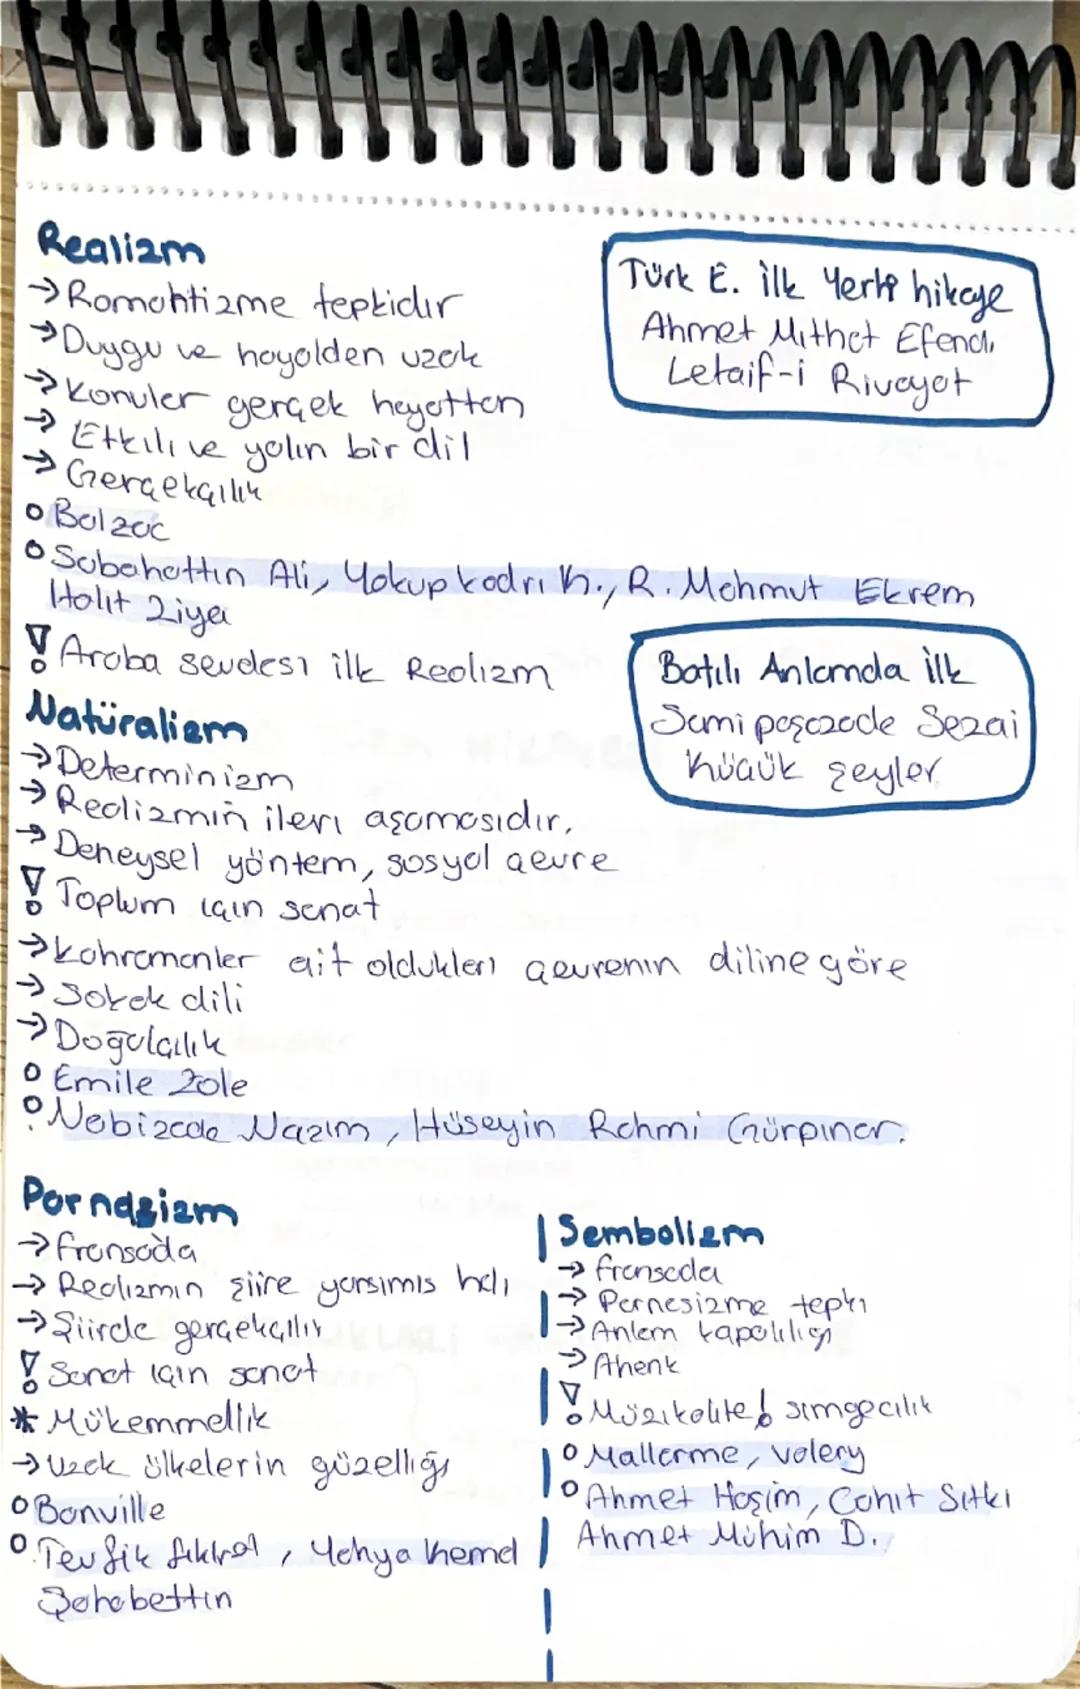 Realizm
→ Romantizme tepkidir
→ Duygu ve hayalden uzak
→ Konular gerçek hayattan
→ Etkili ve yalın bir dil
→ Gerçekçilik
o Balzac
o Sabahattin Ali, Yakup kadri K., R. Mahmut Ekrem
Halit Ziya
! Araba sevdası ilk Realizm
Türk E. ilk Yerli hikaye
Ahmet Mithat Efendi
Letaif-i Rivayat
Batılı Anlamda ilk
Samipaşazade Sezai
Küçük şeyler
Natüralizm
→ Determinizm
→ Realizmin ileri aşamasıdır.
→ Deneysel yöntem, sosyal çevre
! Toplum için sanat
→ kahramanlar ait oldukları çevrenin diline göre
→ Sokak dili
→ Doğalcılık
o Emile Zola
o Nabizade Nazım, Hüseyin Rahmi Gürpınar.
Parnasizm
→ fransada
→ Realizmin şiire yansımıs hali
→ Şiirde gerçekçilik
! Sanat için sanat
* Mükemmellik
→ Uzak ülkelerin güzelliği
o Banville
o Tevfik fikret, Yahya Kemal
Şahabettin
Sembolizm
→ fransada
→ Parnasizme tepki
→ Anlam kapalılığı
→ Ahenk
! Müzikalite! simgecilik
o Mallarme, valery
o Ahmet Haşim, Cahit Sıtkı
Ahmet Muhim D.